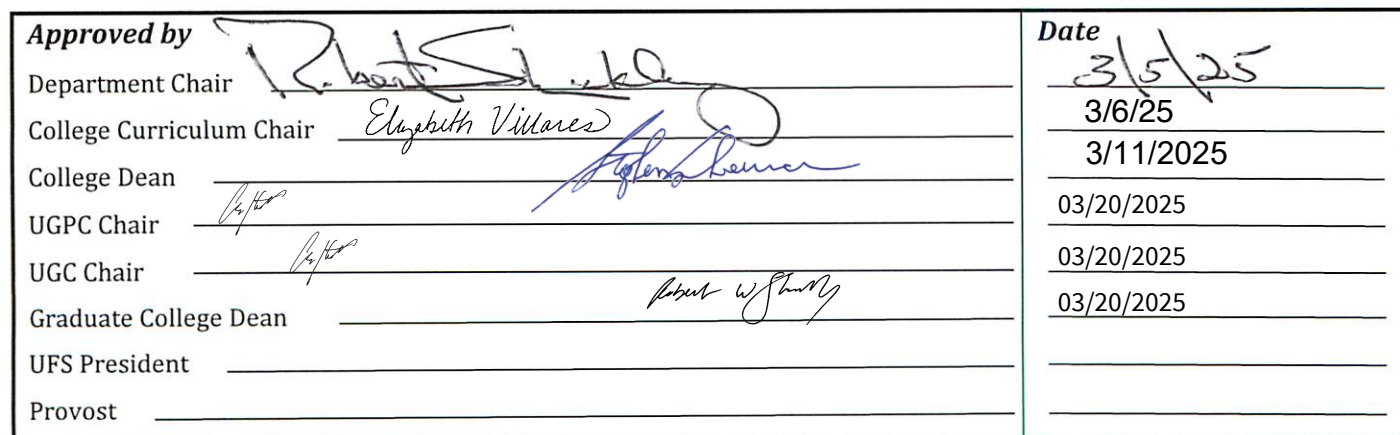 Approved by Date
Department Chair Robert 3/5/25
College Curriculum Chair Elizabeth Villares 3/6/25
College Dean 3/11/2025
UGPC Chair 03/20/2025
UGC Chair 03/20/2025
Graduate College Dean Robert W 03/20/2025
UFS President
Provost